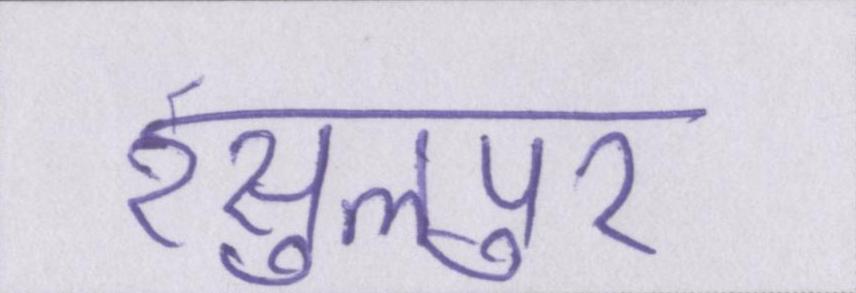 रसुलपुर